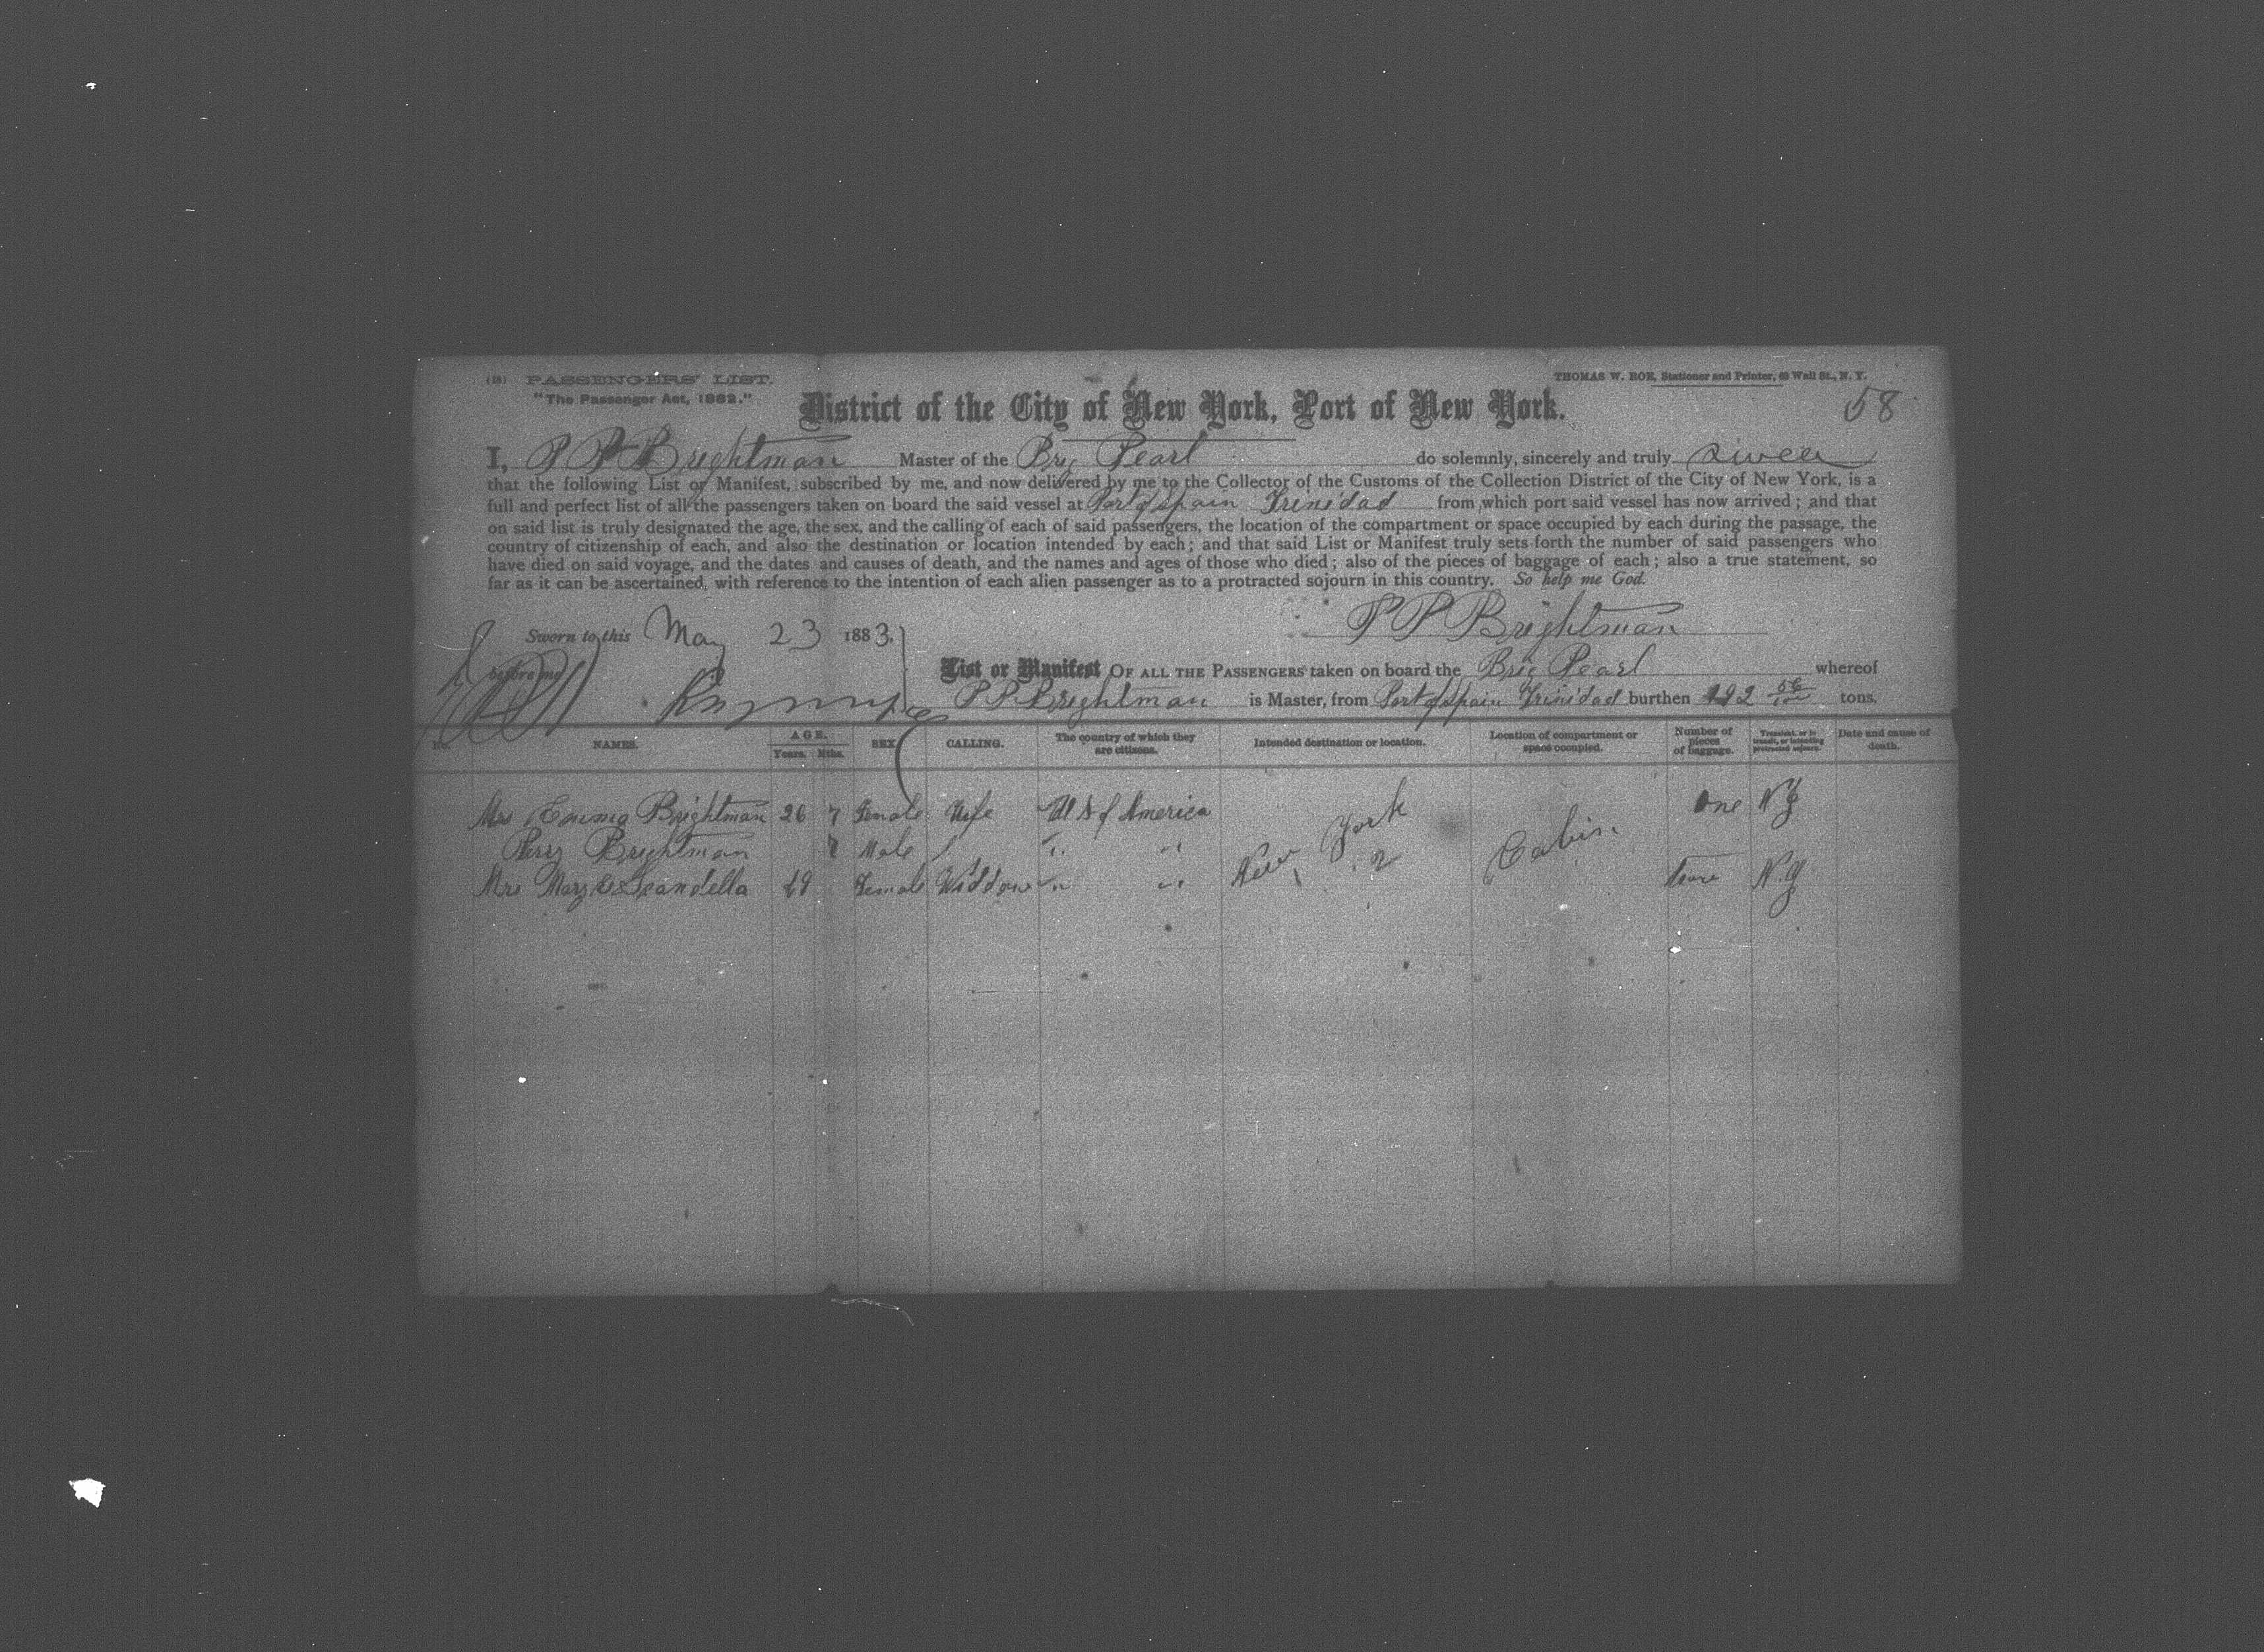 (18) PASSENGERS' LIST.
"The Passenger Act, 1882."
THOMAS W. ROE, Stationer and Printer, 69 Wall St., N. Y.
District of the City of New York, Port of New York.
58
I, P P Brightman Master of the Brig Pearl do solemnly, sincerely and truly swear
that the following List or Manifest, subscribed by me, and now delivered by me to the Collector of the Customs of the Collection District of the City of New York, is a
full and perfect list of all the passengers taken on board the said vessel at Port of Spain Trinidad from which port said vessel has now arrived; and that
on said list is truly designated the age, the sex, and the calling of each of said passengers, the location of the compartment or space occupied by each during the passage, the
country of citizenship of each, and also the destination or location intended by each; and that said List or Manifest truly sets forth the number of said passengers who
have died on said voyage, and the dates and causes of death, and the names and ages of those who died; also of the pieces of baggage of each; also a true statement, so
far as it can be ascertained, with reference to the intention of each alien passenger as to a protracted sojourn in this country. So help me God.
P P Brightman
Sworn to this May 23 1883.
before me
List or Manifest OF ALL THE PASSENGERS taken on board the Brig Pearl whereof
P P Brightman is Master, from Port of Spain Trinidad burthen 192 tons.
No. NAMES. AGE. Years. Mths. SEX CALLING. The country of which they are citizens. Intended destination or location. Location of compartment or space occupied. Number of pieces of baggage. Transient, or in transit, or intending protracted sojourn. Date and cause of death.
Mrs Emma Brightman 26 7 Female Wife U S of America New York Cabin. One N.Y
Perry Brightman 7 Male " "
Mrs Mary Female Widdow " " N.Y